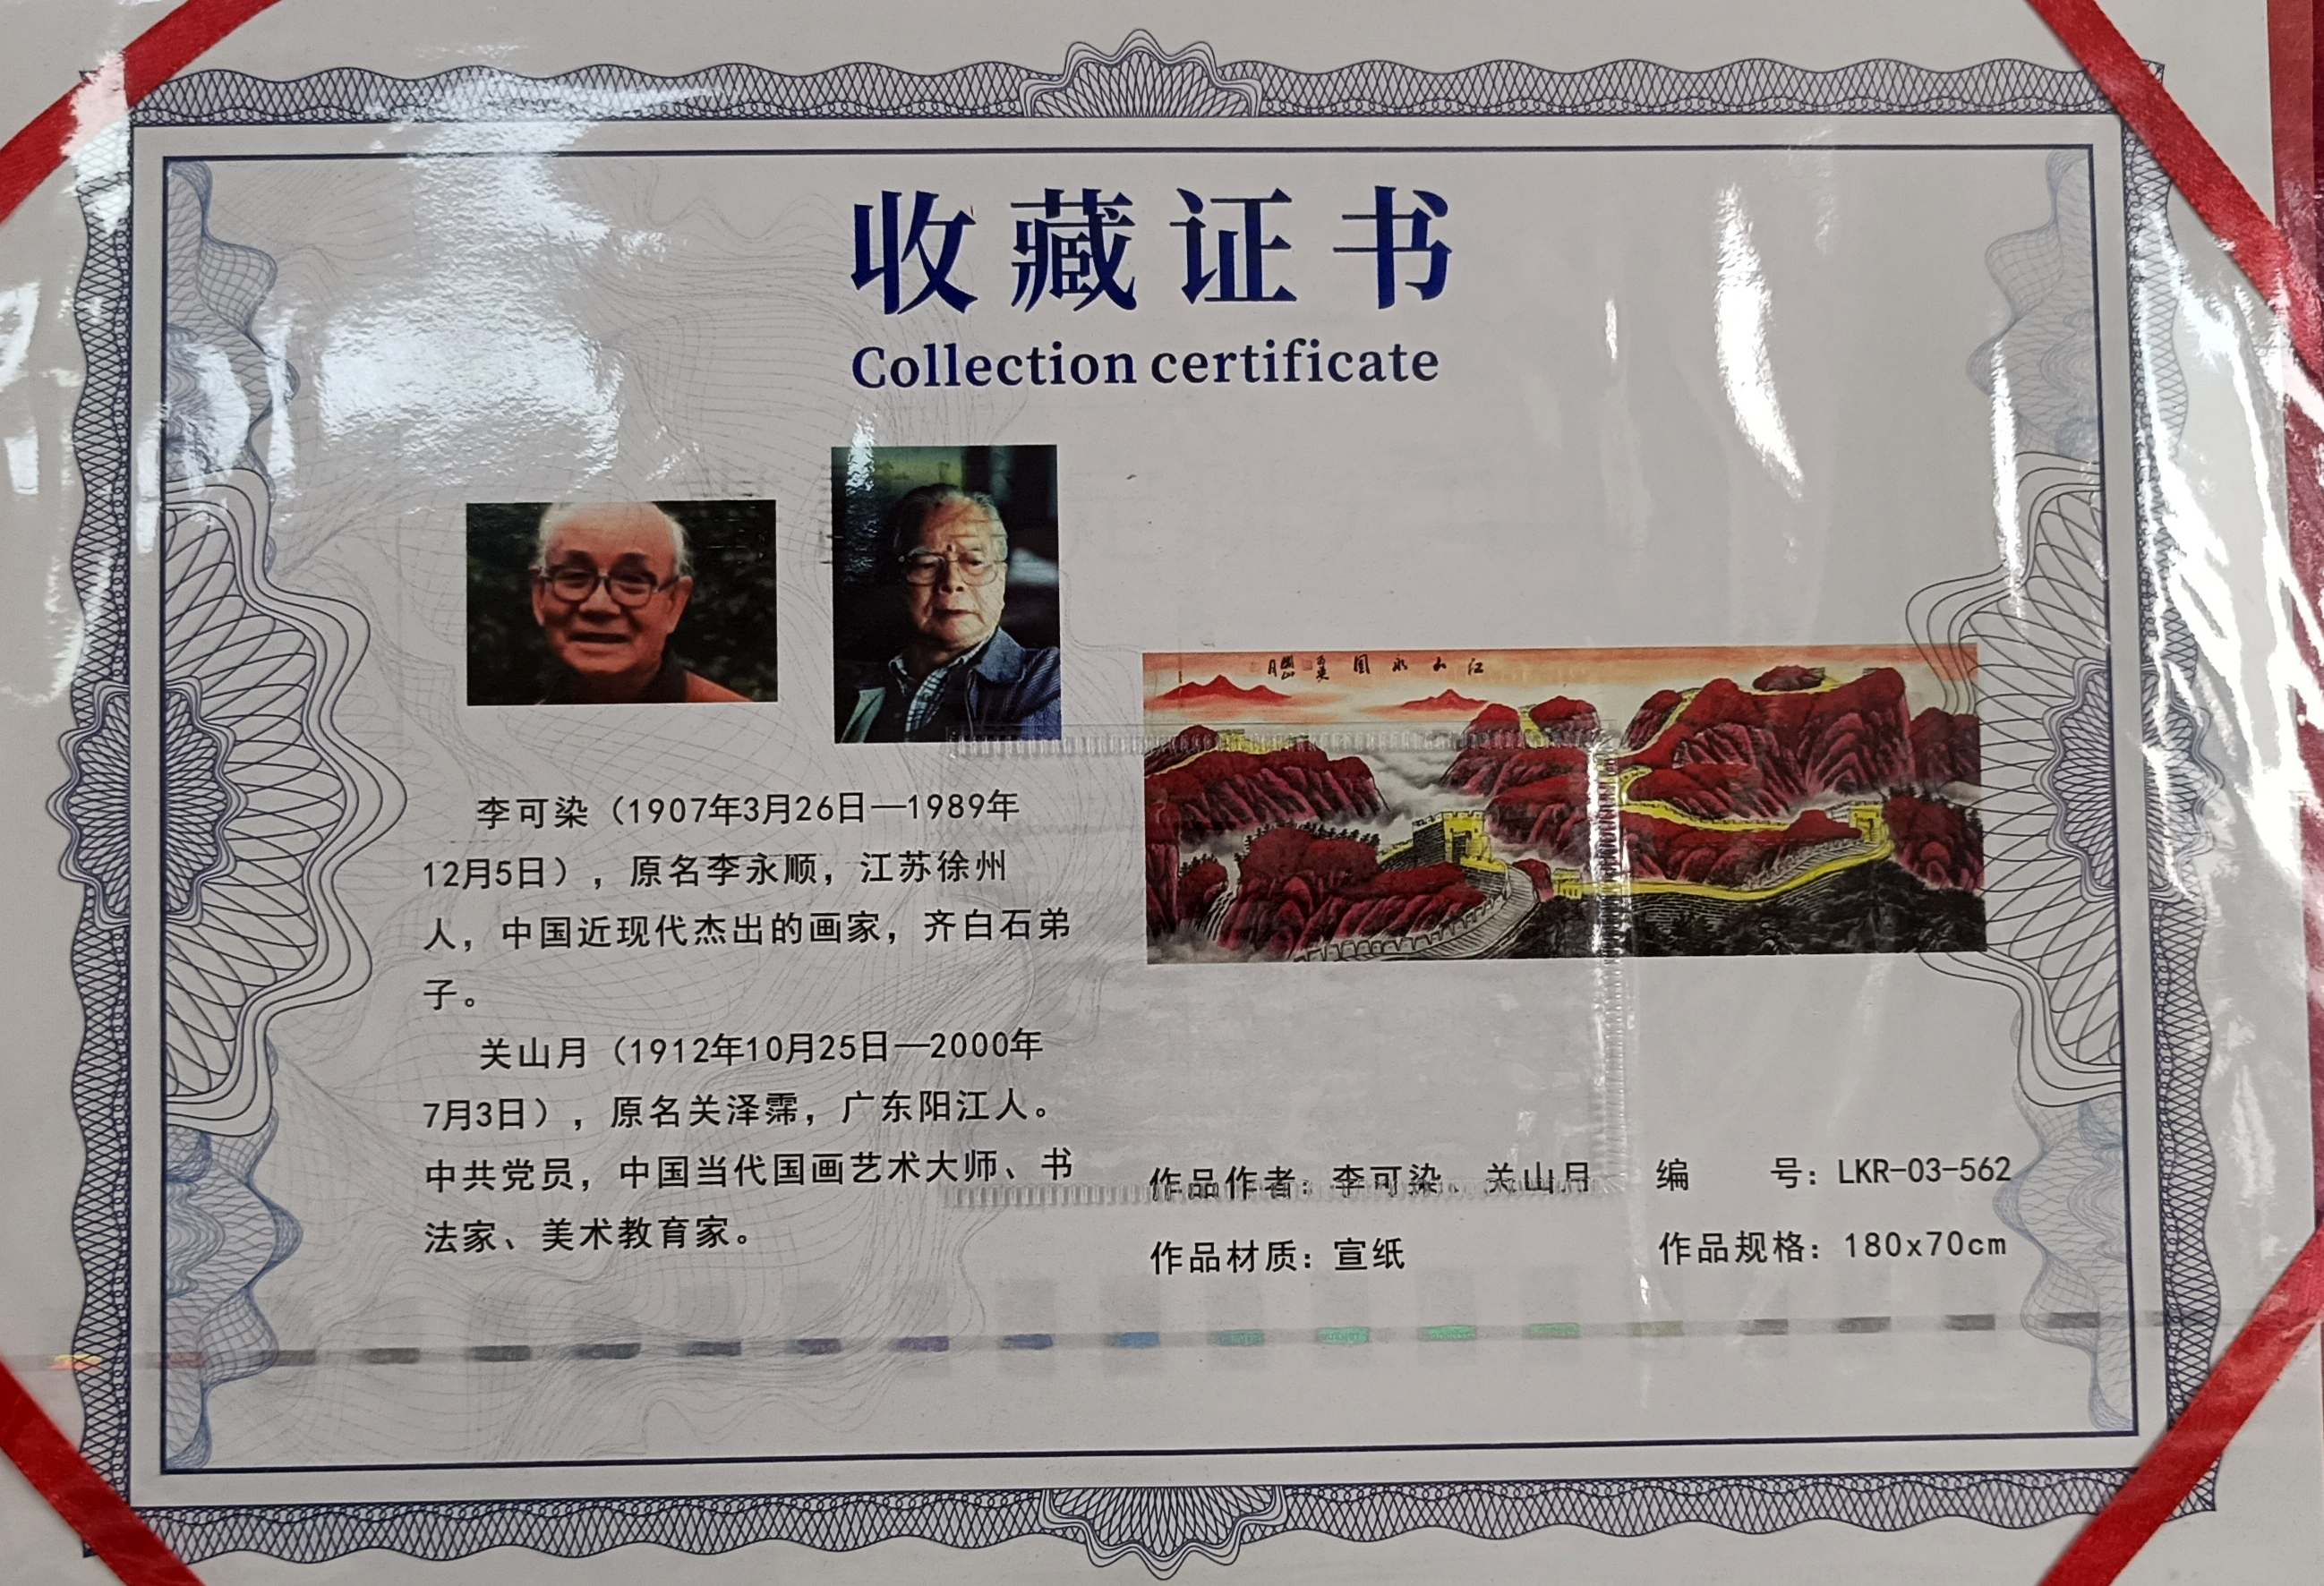 收藏证书
Collection certificate
江山永固
关山月
李可染（1907年3月26日—1989年
12月5日），原名李永顺，江苏徐州
人，中国近现代杰出的画家，齐白石弟
子。
关山月（1912年10月25日—2000年
7月3日），原名关泽霈，广东阳江人。
中共党员，中国当代国画艺术大师、书
法家、美术教育家。
作品作者：李可染、关山月
编　　号：LKR-03-562
作品材质：宣纸
作品规格：180x70cm